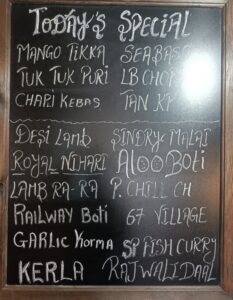 TODAY'S SPECIAL
MANGO TIKKA SEABASS
TUK TUK PURI LB CHOP
CHAPI KEBAS TAN
DESI LAMB SINDRY MALAI
ROYAL NIHARI ALOO BOTI
LAMB RA-RA P. CHILL CH
RAILWAY BOTI 67 VILLAGE
GARLIC KORMA SP FISH CURRY
KERLA RAJWALI DAAL